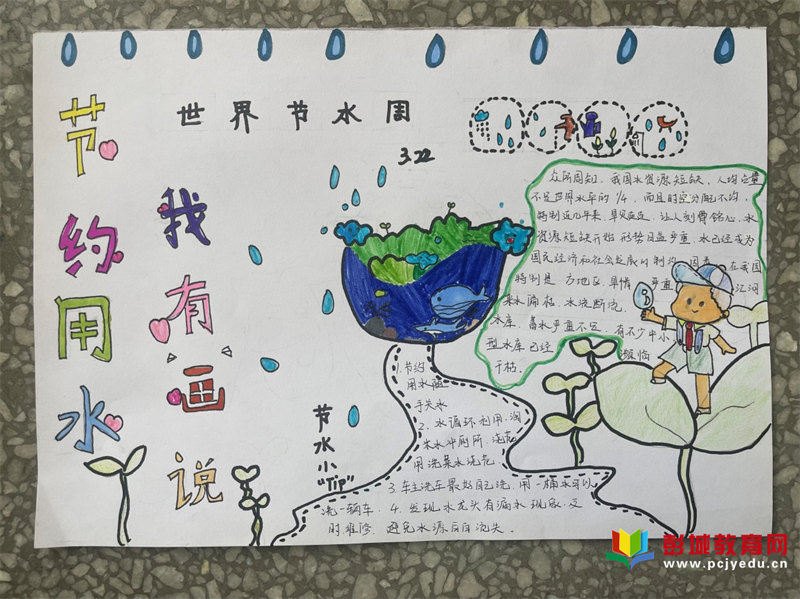 节约用水
我有画说
世界节水周
3.22
众所周知，我国水资源短缺，人均
不足世界水车的1/4，而且时空分配不均，
特别近几年来，旱灾
让人刻骨铭心，水
资源短缺开始形势日益严重，水已经成为
国民经济和社会发展的制约因素，在我国
特别是 方地区，旱情 严重，江河
来水
水库，蓄水严重不足，有不少中小
型水库已经 濒临
干枯.
节水小"Tip"
1.节约
用水随
手关水
2.水循环利用，淘
米水冲厕所，浇花
用洗菜水浇花
3.车主洗车最好自己洗，用一桶水可以
洗一辆车，4.发现水龙头有漏水现象，及
时维修，避免水源白白流失.
彭城教育网
www.pcjyedu.cn